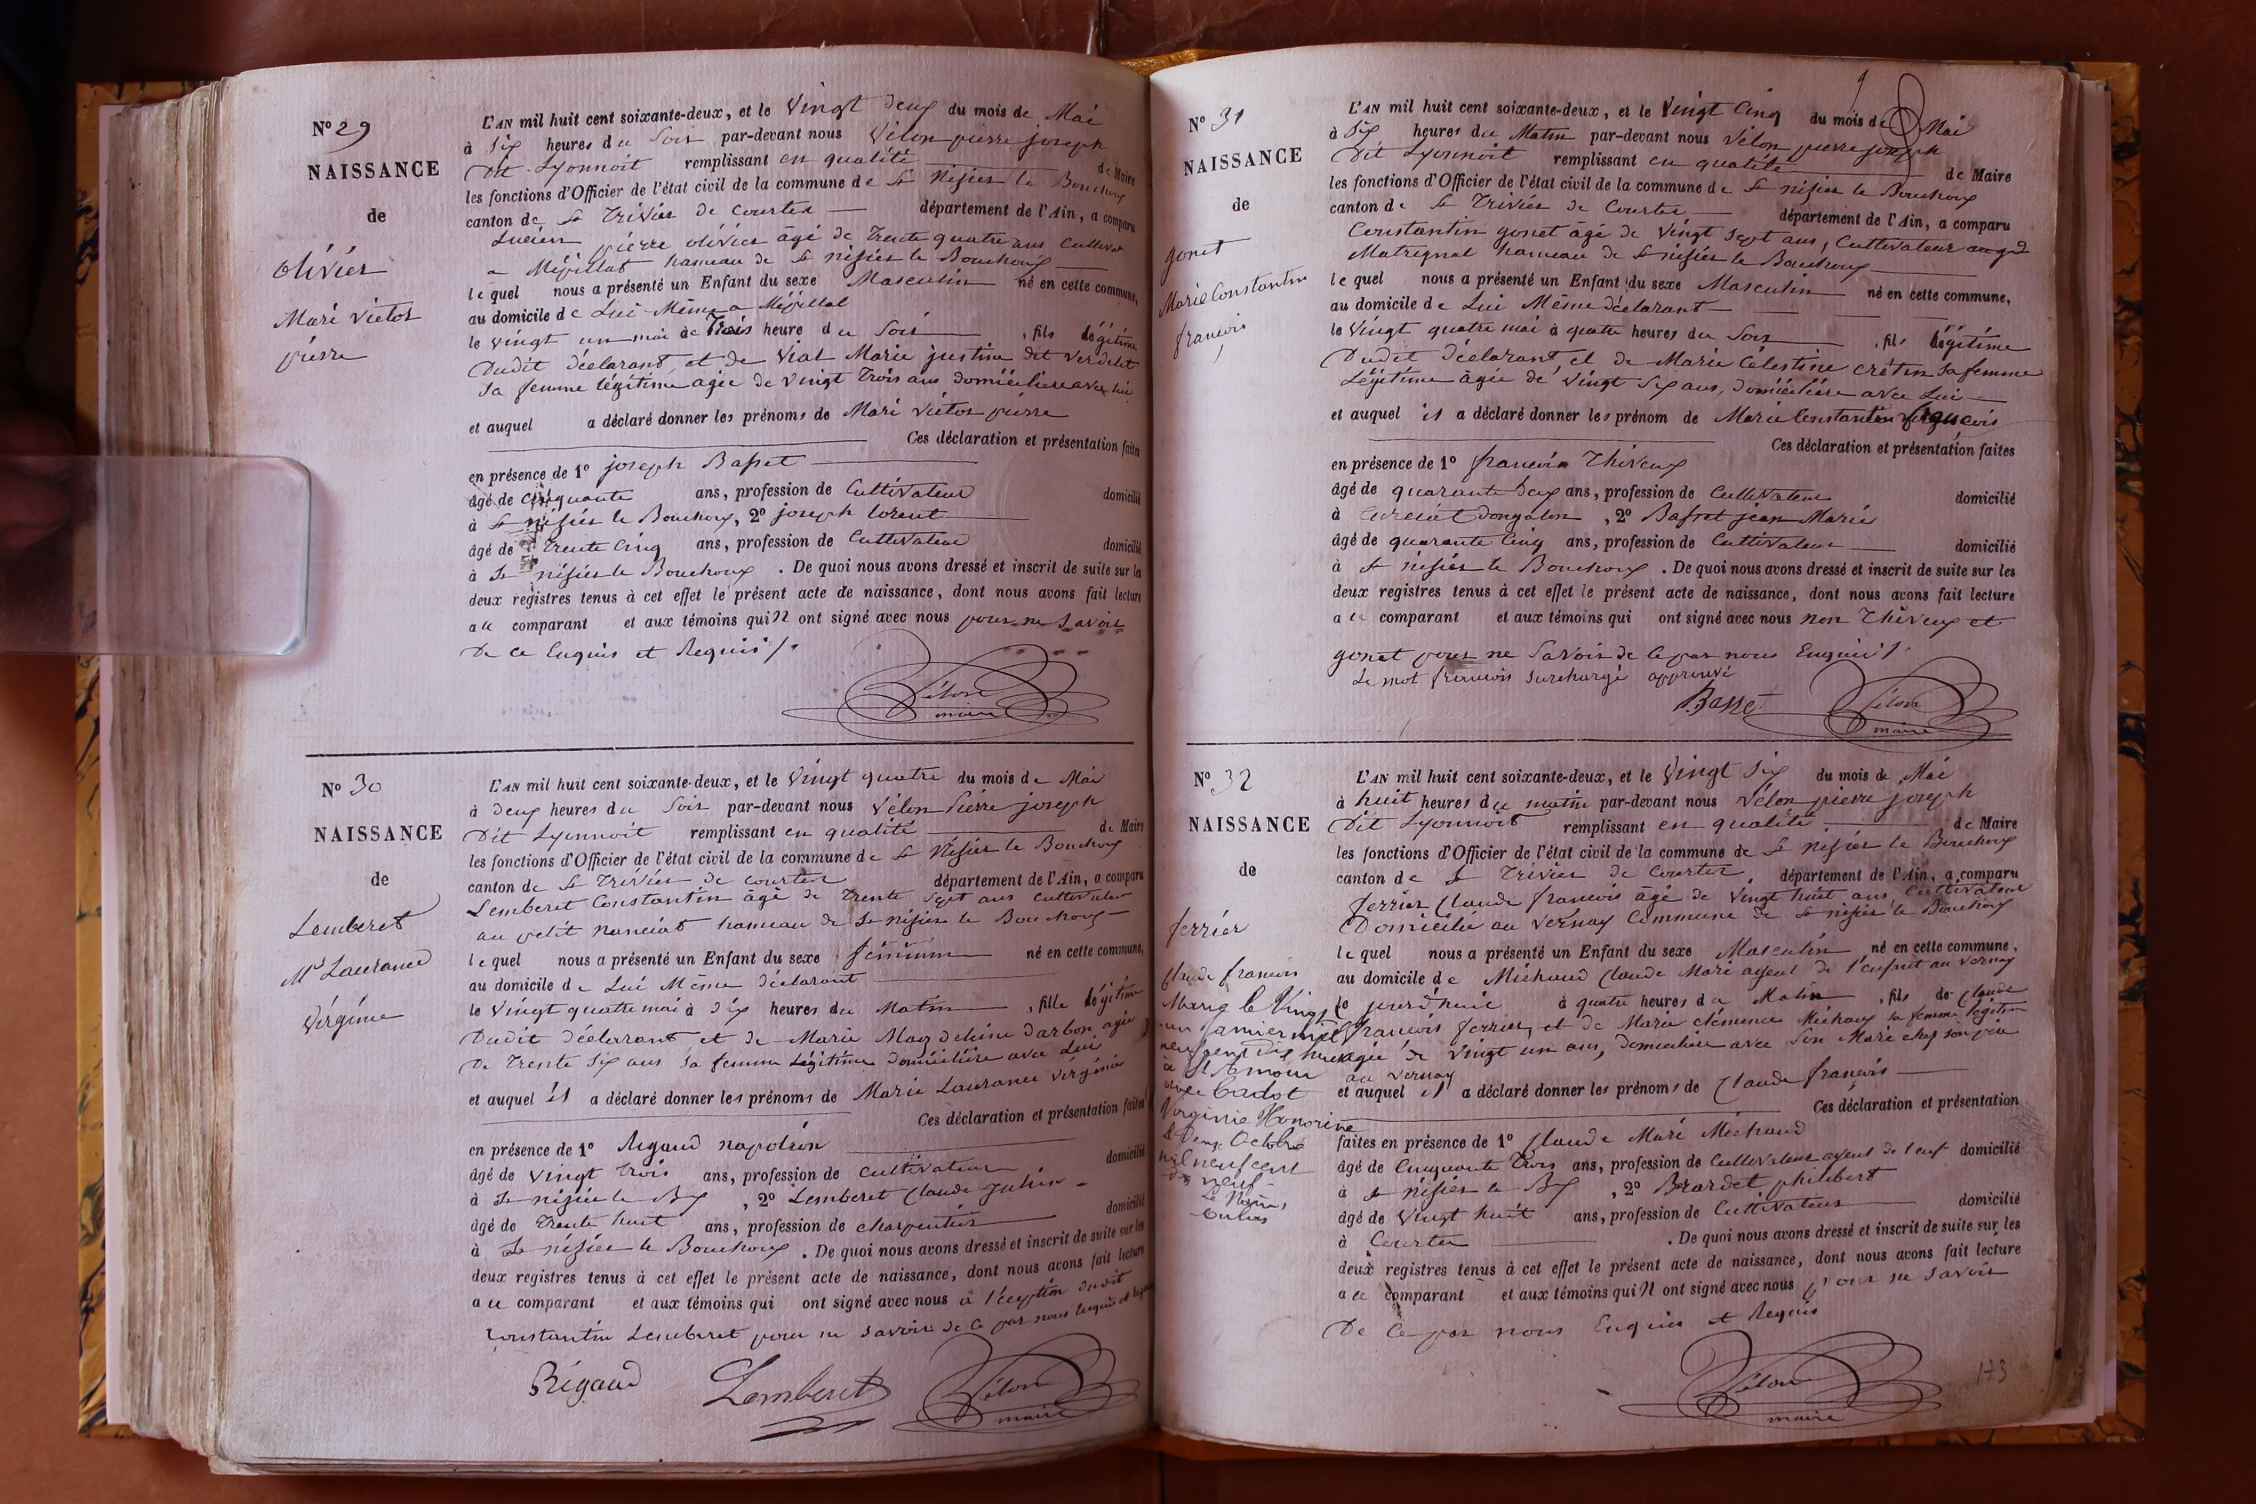 N° 29
NAISSANCE
de
Olivier
Mari Victor
pierre
L'AN mil huit cent soixante-deux, et le Vingt deux du mois de Mai
à Six heures du Soir par-devant nous Vélon pierre joseph
Dit Lyonnoit remplissant en qualité de Maire
les fonctions d'Officier de l'état civil de la commune de St Nisier le Bouchoux
canton de St Trivier de Courtes département de l'Ain, a comparu
Lucien pierre olivier âgé de Trente quatre ans Cultivat
a Mépillat hameau de St nisier le Bouchoux
lequel nous a présenté un Enfant du sexe Masculin né en cette commune,
au domicile de Lui Même a Mépillat
le vingt un mai à Trois heure du Soir , fils légitime
Dudit déclarant et de Viat Marie justine dit verdelet
Sa femme légitime agée de vingt Trois ans domiciliée avec lui
et auquel a déclaré donner les prénoms de Mari Victor pierre
Ces déclaration et présentation faites
en présence de 1° joseph Basset
âgé de Cinquante ans, profession de Cultivateur domicilié
à St nisier le Bouchoux, 2° joseph lorent
âgé de Trente Cinq ans, profession de Cultivateur domicilié
à St nisier le Bouchoux . De quoi nous avons dressé et inscrit de suite sur les
deux registres tenus à cet effet le présent acte de naissance, dont nous avons fait lecture
au comparant et aux témoins qui n ont signé avec nous pour ne Savoir
De ce Enquis et Requis
Vélon
maire
N° 30
NAISSANCE
de
Lemberet
Mie Laurance
Virginie
L'AN mil huit cent soixante-deux, et le Vingt quatre du mois de Mai
à Deux heures du Soir par-devant nous Vélon Pierre joseph
Dit Lyonnoit remplissant en qualité de Maire
les fonctions d'Officier de l'état civil de la commune de St Nisier le Bouchoux
canton de St Trivier de courtes département de l'Ain, a comparu
Lemberet Constantin âgé de Trente Sept ans cultivateur
au petit nanciat hameau de St nisier le Bouchoux
lequel nous a présenté un Enfant du sexe féminin né en cette commune,
au domicile de Lui Même déclarant
le Vingt quatre mai à Dix heures du Matin , fille légitime
Dudit déclarant et de Marie Magdeleine Darbon agée
De Trente Six ans Sa femme Légitime domiciliée avec Lui
et auquel il a déclaré donner les prénoms de Marie Laurance Virginie
Ces déclaration et présentation faites
en présence de 1° Rigaud napoléon
âgé de Vingt Trois ans, profession de Cultivateur domicilié
à St nisier le Bx , 2° Lemberet Claude Julien
âgé de Trente huit ans, profession de charpentier domicilié
à St nisier le Bouchoux . De quoi nous avons dressé et inscrit de suite sur les
deux registres tenus à cet effet le présent acte de naissance, dont nous avons fait lecture
au comparant et aux témoins qui ont signé avec nous à l'éception dudit
Constantin Lemberet pour ne Savoir de ce par nous Enquis et
Rigaud Lemberet Vélon
maire
N° 31
NAISSANCE
de
gonet
Marie Constantin
francois
L'AN mil huit cent soixante-deux, et le Vingt Cinq du mois de Mai
à Six heures du Matin par-devant nous Vélon pierre joseph
Dit Lyonnoit remplissant en qualité de Maire
les fonctions d'Officier de l'état civil de la commune de St nisier le Bouchoux
canton de St Trivier de Courtes département de l'Ain, a comparu
Constantin gonet âgé de Vingt Sept ans, Cultivateur au gd
Matrignat hameau de St nisier le Bouchoux
lequel nous a présenté un Enfant du sexe Masculin né en cette commune,
au domicile de Lui Même déclarant
le Vingt quatre mai à quatre heures du Soir , fils légitime
Dudit déclarant et de Marie Célestine crétin Sa femme
Légitime âgée de Vingt Six ans, domiciliée avec Lui
et auquel il a déclaré donner les prénom de Marie Constantin francois
Ces déclaration et présentation faites
en présence de 1° francois Thiveux
âgé de quarante Deux ans, profession de Cultivateur domicilié
à Curciat Dongalon , 2° Basset jean Marie
âgé de quarante Cinq ans, profession de Cultivateur domicilié
à St nisier le Bouchoux . De quoi nous avons dressé et inscrit de suite sur les
deux registres tenus à cet effet le présent acte de naissance, dont nous avons fait lecture
au comparant et aux témoins qui ont signé avec nous non Thiveux et
gonet pour ne Savoir de Ce par nous Enquis
Le mot francois Surchargé approuvé
Basset Vélon
maire
N° 32
NAISSANCE
de
ferrier
Claude francois
Marié le Vingt
un Janvier mil
neuf cent Dix neuf
à St Amour
avec Cadot
Virginie Honorine
le Deux Octobre
mil neuf cent
dix neuf
L'AN mil huit cent soixante-deux, et le Vingt Six du mois de Mai
à huit heures du matin par-devant nous Vélon pierre joseph
Dit Lyonnoit remplissant en qualité de Maire
les fonctions d'Officier de l'état civil de la commune de St nisier le Bouchoux
canton de St Trivier de Courtes département de l'Ain, a comparu
ferrier Claude francois âgé de Vingt huit ans, Cultivateur
Domicilié au Vernay Commune de St nisier le Bouchoux
lequel nous a présenté un Enfant du sexe Masculin né en cette commune,
au domicile de Michaud Claude Marie ayeul de l'enfant au Vernay
le jourd'huit à quatre heures du Matin , fils de Claude
francois ferrier, et de Marie clémence Michaux Sa femme légitime
agée de Vingt un ans, domiciliée avec Son Mari chez son père
au Vernay
et auquel il a déclaré donner les prénoms de Claude francois
Ces déclaration et présentation
faites en présence de 1° Claude Mari Michaud
âgé de Cinquante Trois ans, profession de Cultivateur ayeul de l'enf domicilié
à St nisier le Bx , 2° Brardet philibert
âgé de Vingt huit ans, profession de Cultivateur domicilié
à Courtes . De quoi nous avons dressé et inscrit de suite sur les
deux registres tenus à cet effet le présent acte de naissance, dont nous avons fait lecture
au comparant et aux témoins qui n ont signé avec nous pour ne Savoir
De Ce par nous Enquis et Requis
Vélon
maire
173